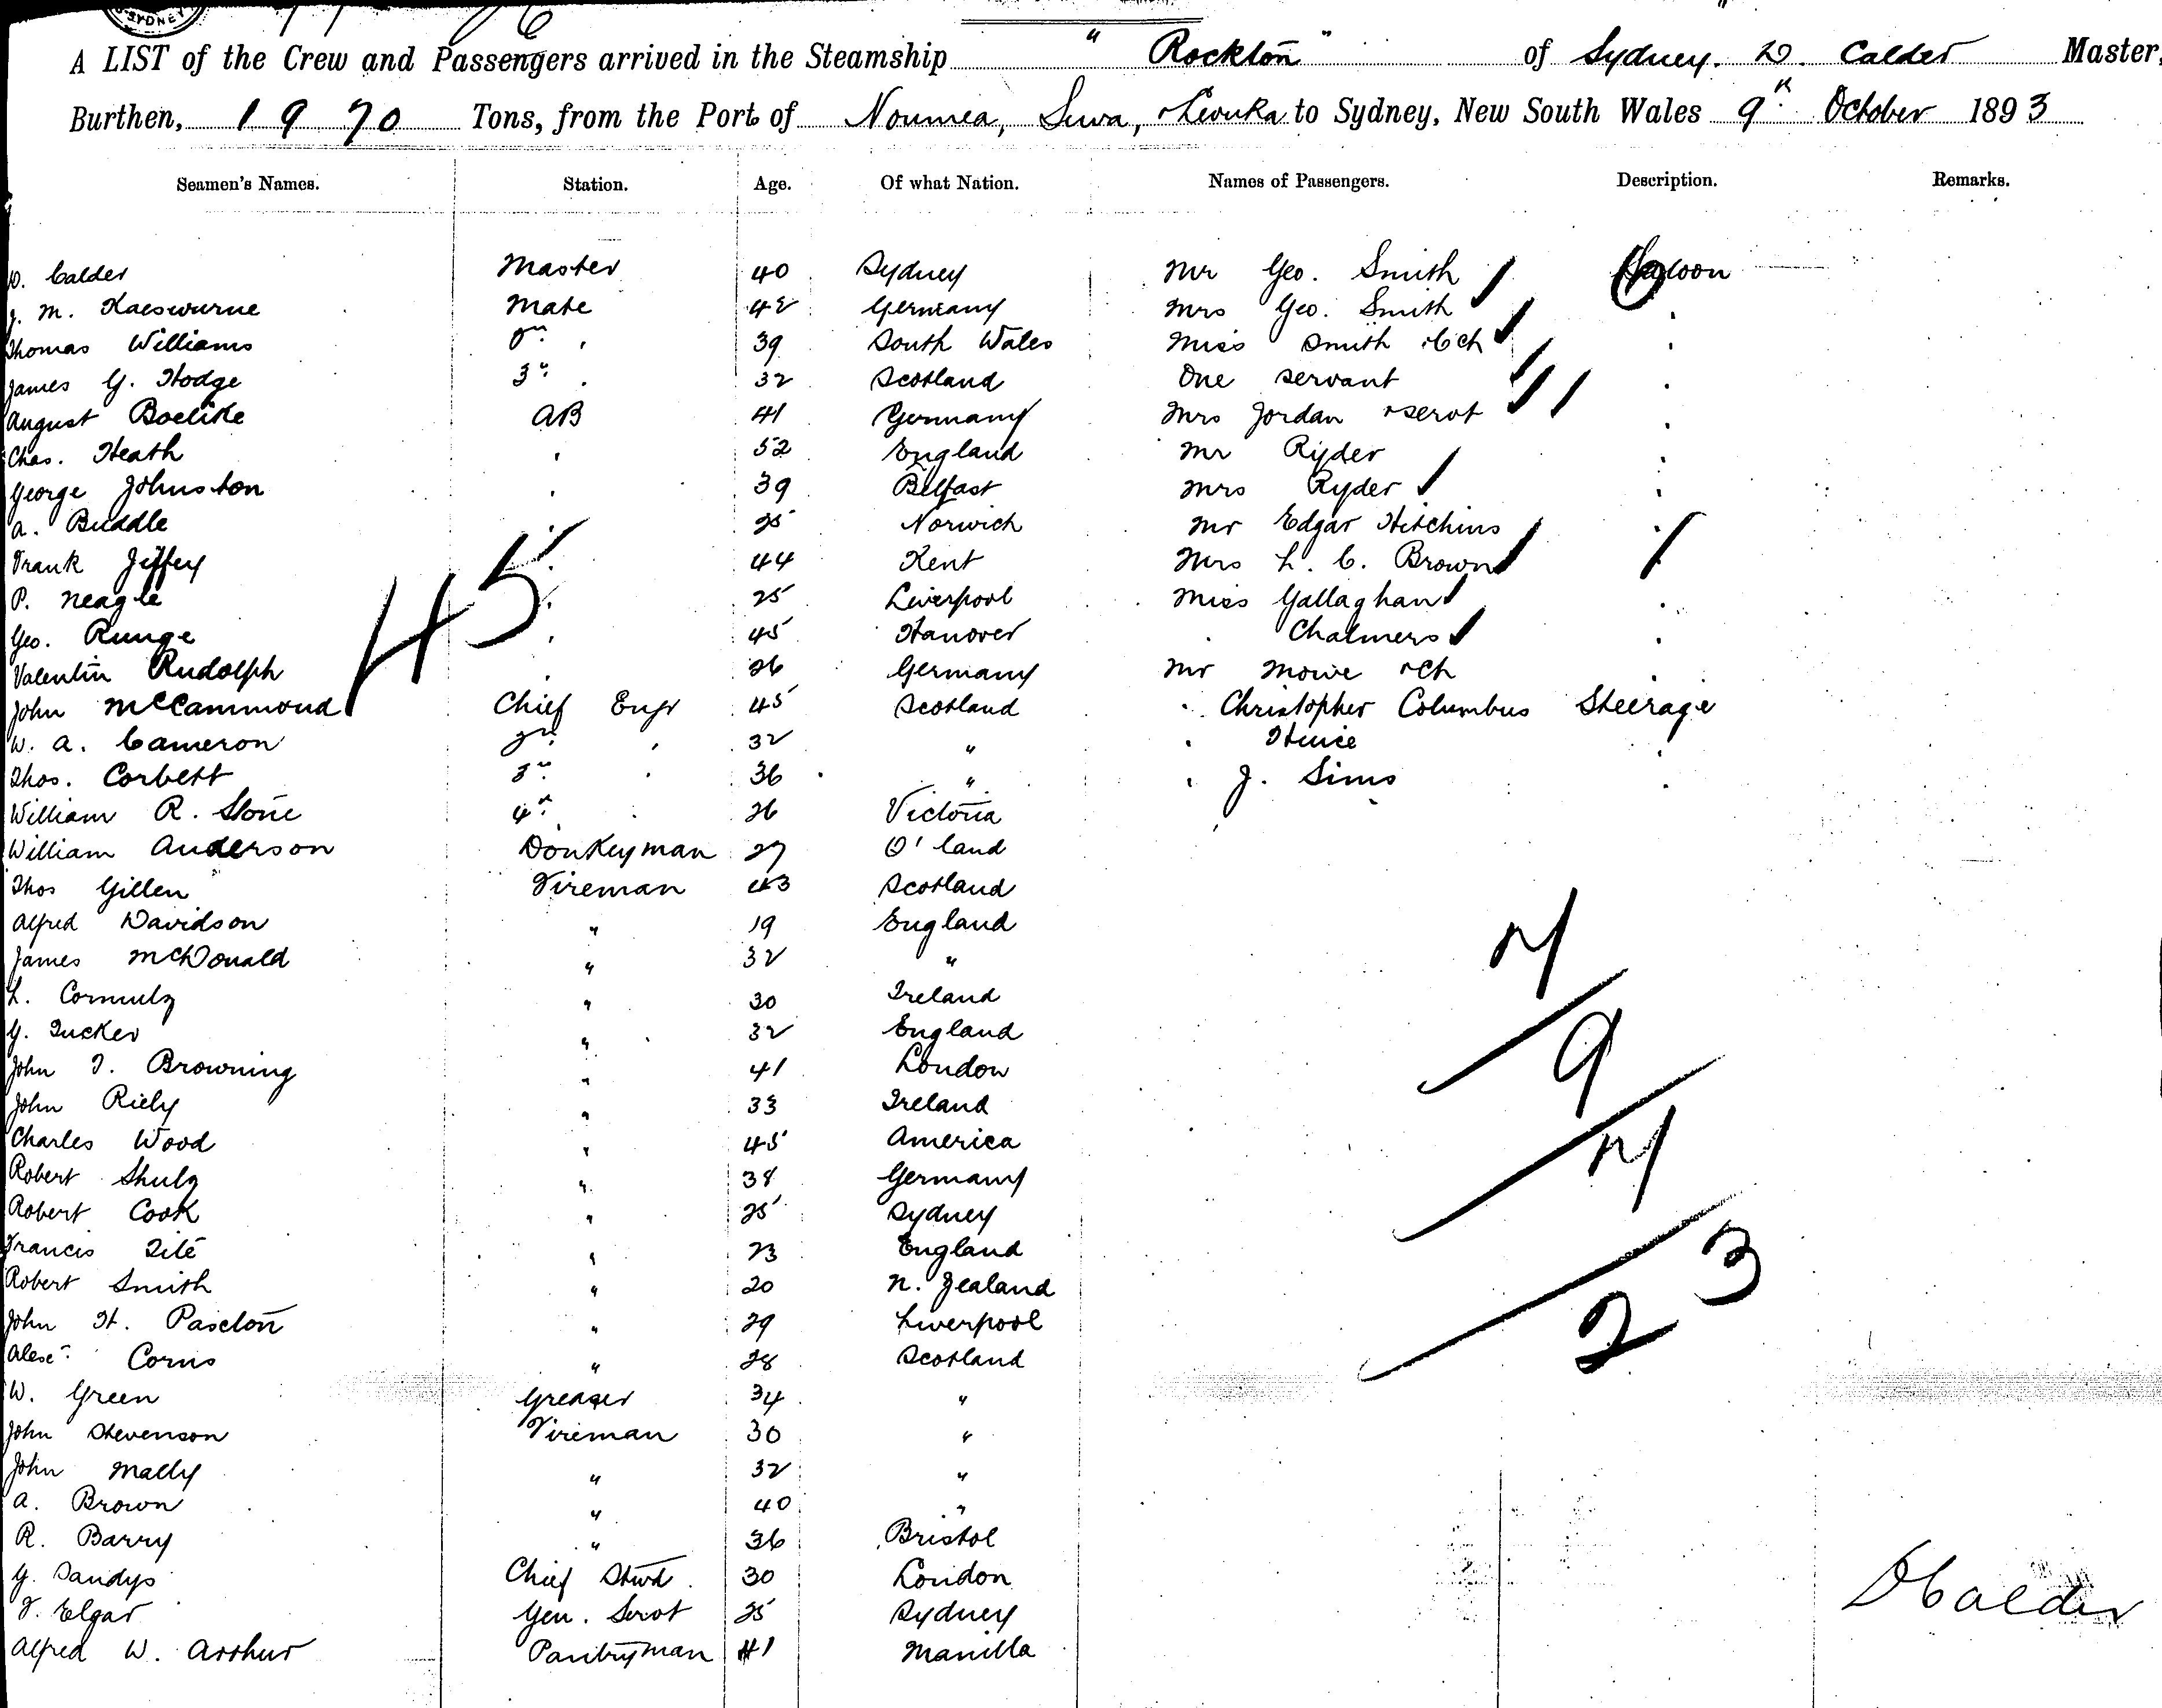 SYDNEY
A LIST of the Crew and Passengers arrived in the Steamship "Rockton" of Sydney. D. Calder Master,
Burthen, 1970 Tons, from the Port of Noumea, Suva, + Levuka to Sydney, New South Wales 9th October 1893
Seamen's Names. Station. Age. Of what Nation. Names of Passengers. Description. Remarks.
D. Calder Master 40 Sydney Mr Geo. Smith Saloon
J. M. Kaeswurne Mate 42 Germany Mrs Geo. Smith
Thomas Williams 2nd " 39 South Wales Miss Smith + Ch
James G. Hodge 3rd " 32 Scotland One servant
August Boelike AB 41 Germany Mrs Jordan + servt
Chas. Heath " 52 England Mr Ryder
George Johnston " 39 Belfast Mrs Ryder
A. Buddle " 25 Norwich Mr Edgar Hitchins
Frank Jeffery " 44 Kent Mrs L. C. Brown
P. Neagle " 25 Liverpool Miss Gallaghan
Geo. Runge " 45 Hanover " Chalmers
Valentin Rudolph " 26 Germany Mr Mowe + Ch
45
John McCammond Chief Engr 45 Scotland " Christopher Columbus Steerage
W. A. Cameron 2nd " 32 " "
Thos. Corbett 3rd " 36 " " J. Sims
William R. Stone 4th " 26 Victoria
William Anderson Donkeyman 27 Q'land
Thos Gillen Fireman 43 Scotland
Alfred Davidson " 19 England
James McDonald " 32 "
L. " 30 Ireland
G. Tucker " 32 England
John T. Browning " 41 London
John Riely " 33 Ireland
Charles Wood " 45 America
Robert Shulz " 38 Germany
Robert Cook " 25 Sydney
Francis Tite " 23 England
Robert Smith " 20 N. Zealand
John H. Paxton " 29 Liverpool
Alexr. Corns " 28 Scotland
W. Green Greaser 34 "
John Stevenson Fireman 30 "
John Mally " 32 "
A. Brown " 40 "
R. Barry " 36 Bristol
G. Sandys Chief Stwd. 30 London
F. Elgar Gen. Servt 25 Sydney
Alfred W. Arthur Pantryman 41 Manilla
9
23
D Calder